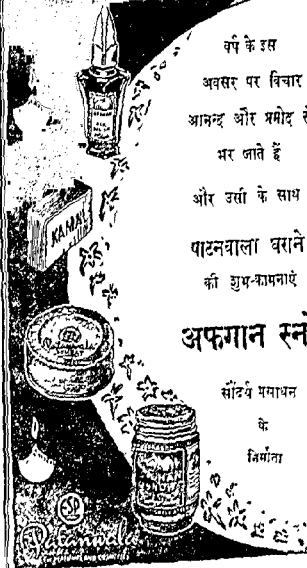 वर्ष के इस
अवसर पर विचार
आनन्द और प्रमोद से
भर जाते हैं
और उसी के साथ
पाटनवाला घराने
की शुभ-कामनाएं
अफगान स्नो
सौंदर्य प्रसाधन
के
निर्माता
KAMAL
Patanwala
ESP
Patanwala